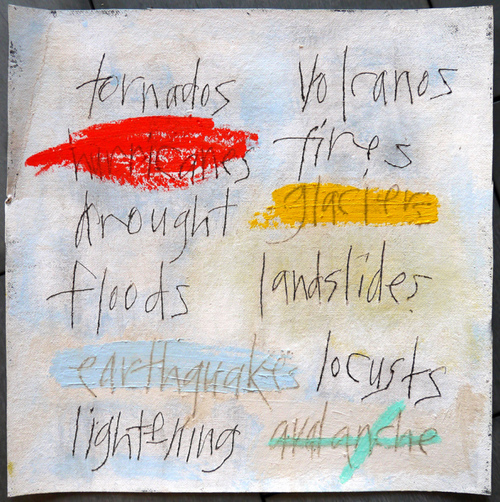 tornados
hurricanes
drought
floods
earthquakes
lightening
volcanos
fires
glaciers
landslides
locusts
avalanche